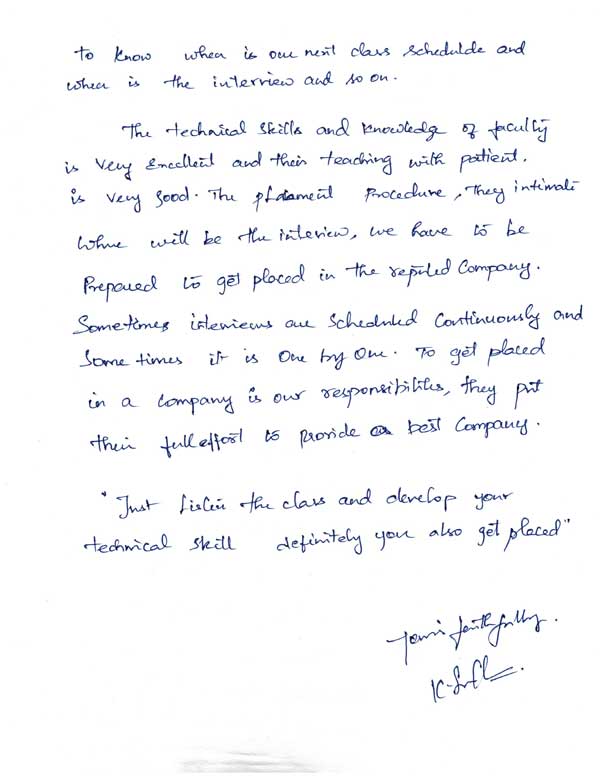 to know when is our next class schedulde and
when is the interview and so on.
The technical skills and knowledge of faculty
is very excellent and their teaching with patient.
is very good. The placement Procedure, they intimate
whne will be the interview, we have to be
Prepared to get placed in the reputed Company.
Sometimes interviews are scheduled continuously and
Some times it is one by one. To get placed
in a company is our responsibilities, they put
their full effort to provide best Company.
"Just Listen the class and develop your
technical skill definitely you also get placed"
Yours faithfully.